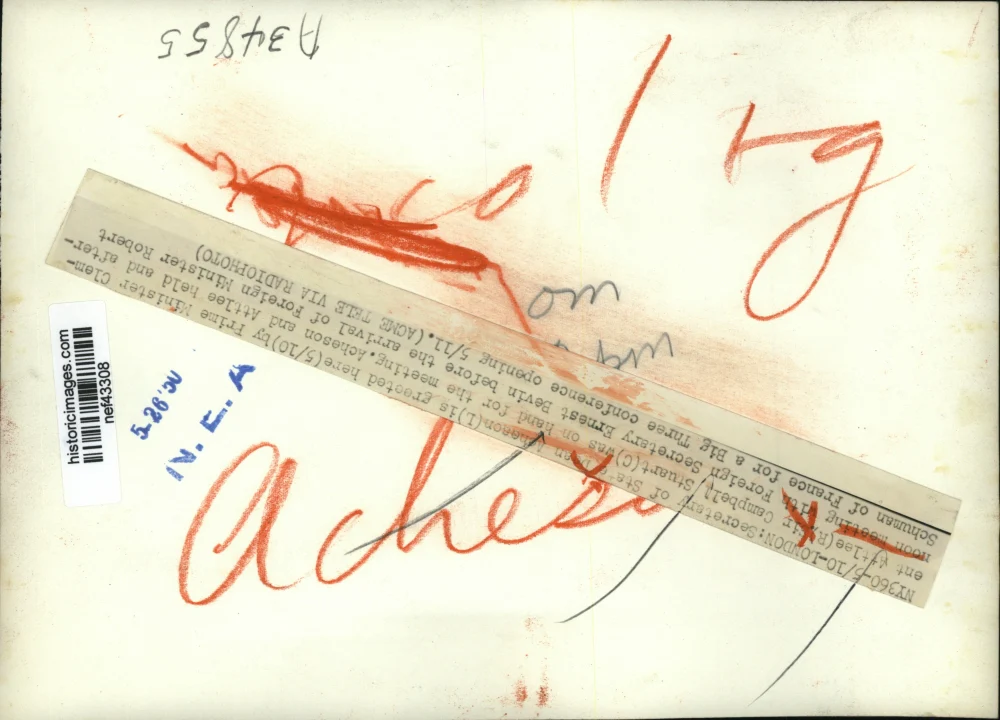 A34855
NY360-5/10-LONDON:Secretary of State Dean Acheson(L)is greeted here(5/10)by Prime Minister Clem-
ent Attlee(R).Sir Campbell Stuart(C)was on hand for the meeting.Acheson and Attlee held and after-
noon meeting with Foreign Secretary Ernest Bevin before the arrival of Foreign Minister Robert
Schuman of France for a Big Three conference opening 5/11.(ACME TELE VIA RADIOPHOTO)
historicimages.com
nef43308
N. E. A
Acheson